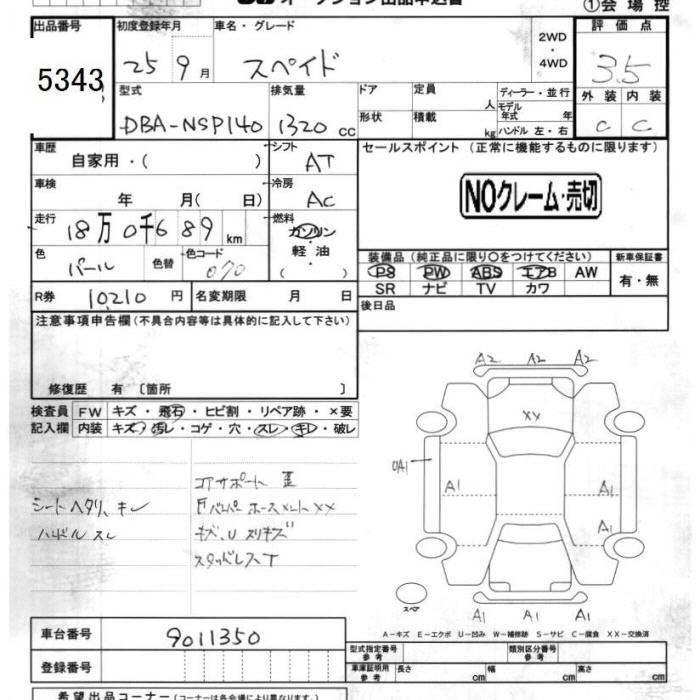 オークション出品申込書
①会場控
出品番号 初度登録年月 車名・グレード 2WD・4WD 評価点
5343 25 9月 スペイド 3.5
型式 排気量 ドア 定員 人 ディーラー・並行 外装 内装
DBA-NSP140 1320 cc 形状 積載 kg モデル年式 年 ハンドル 左・右 C C
車歴 自家用・( ) シフト AT セールスポイント(正常に機能するものに限ります)
車検 年 月( 日) 冷房 AC NOクレーム・売切
走行 18万0千689 km 燃料 ガソリン 軽油 ( )
装備品(純正品に限り○をつけてください) 新車保証書
色 パール 色替 色コード 070 PS PW ABS エアB AW 有・無
SR ナビ TV カワ
R券 10210 円 名変期限 月 日 後日品
注意事項申告欄(不具合内容等は具体的に記入して下さい)
修復歴 有〔箇所 〕
検査員記入欄 FW キズ・飛石・ヒビ割・リペア跡・×要
内装 キズ・汚レ・コゲ・穴・スレ・キレ・破レ
コアサポート 歪
シートヘタリ、キレ FバンパーホースメントXX
ハンドルスレ キズ、U スリキズ
スタッドレスT
A2 A2 A2
XX
UA1
A1 A1
A1
スペア
A1 A1
A-キズ E-エクボ U-凹み W-補修跡 S-サビ C-腐食 XX-交換済
車台番号 9011350
型式指定番号 参考 類別区分番号 参考
登録番号 車庫証明用 参考 長さ cm 幅 cm 高さ cm
希望出品コーナー(コーナーは各会場により異なります。)